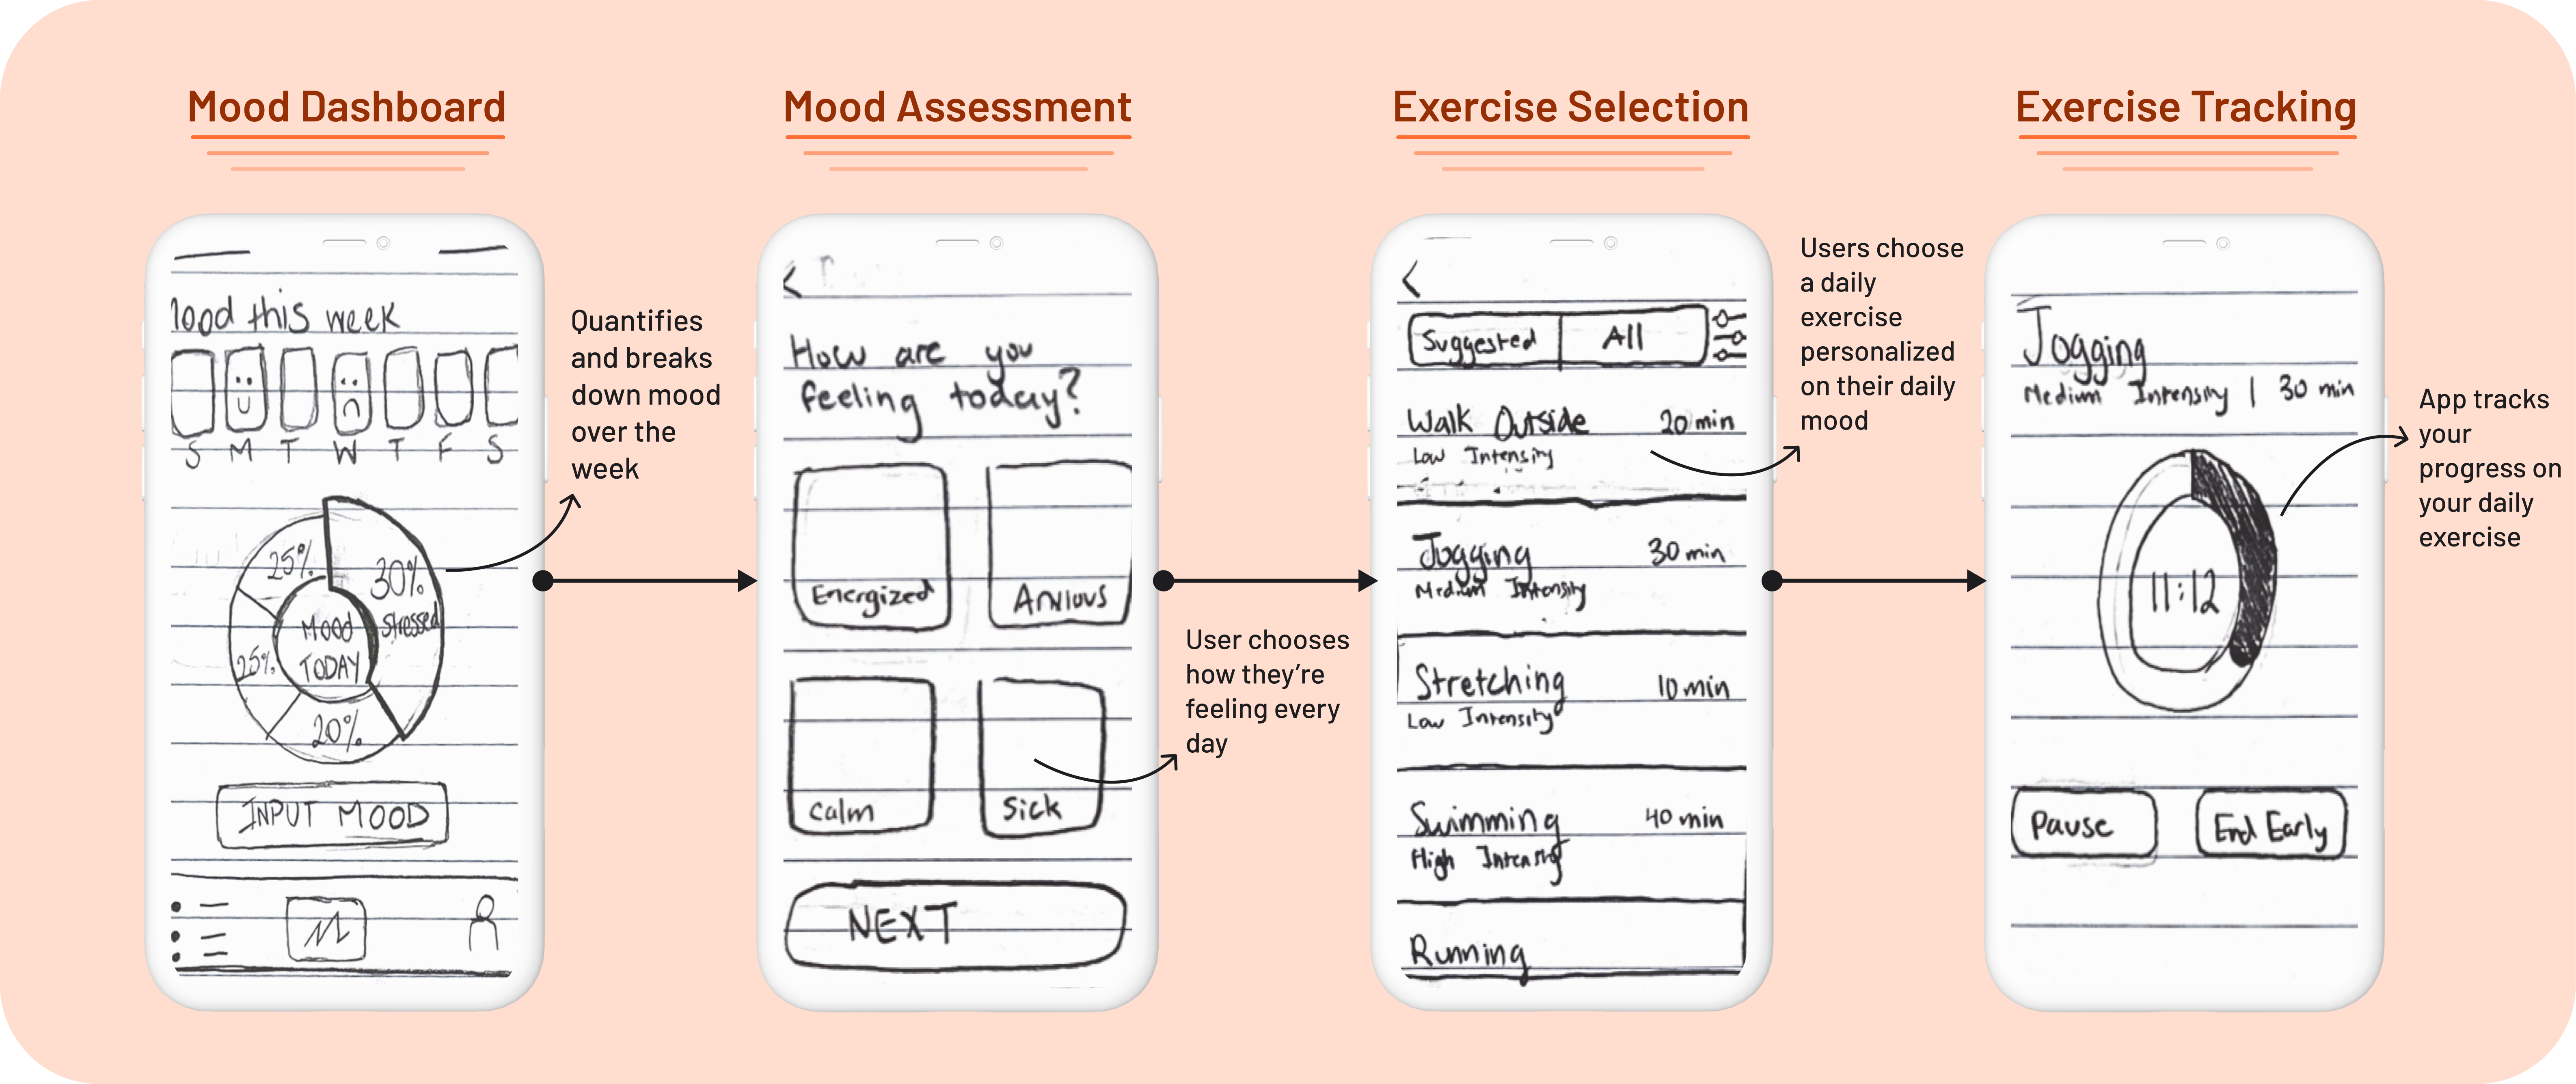 Mood Dashboard
Mood Assessment
Exercise Selection
Exercise Tracking
Mood this week
S M T W T F S
25%
30%
stressed
MOOD
TODAY
25%
20%
INPUT MOOD
Quantifies
and breaks
down mood
over the
week
How are you
feeling today?
Energized
Anxious
Calm
Sick
NEXT
User chooses
how they're
feeling every
day
Suggested
All
Walk Outside 20 min
Low Intensity
Jogging 30 min
Medium Intensity
Stretching 10 min
Low Intensity
Swimming 40 min
High Intensity
Running
Users choose
a daily
exercise
personalized
on their daily
mood
Jogging
Medium Intensity | 30 min
11:12
Pause
End Early
App tracks
your
progress on
your daily
exercise